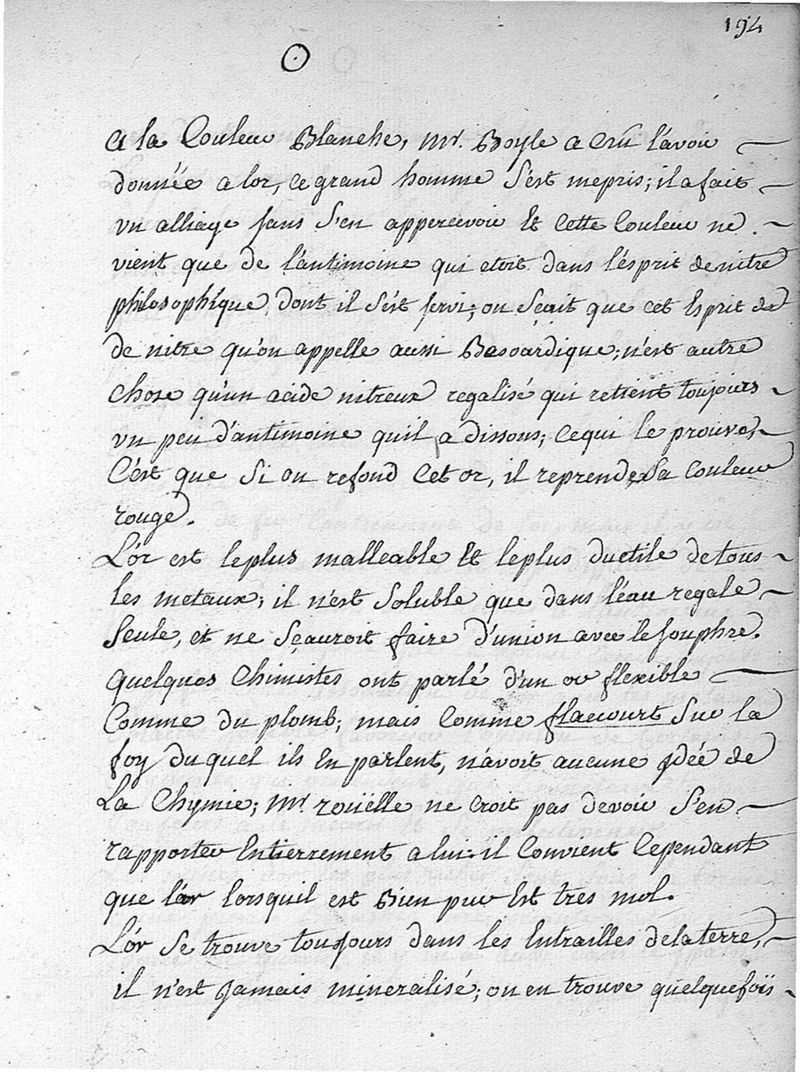 194
a la Couleur Blanche, Mr. Boyle a crû l'avoir
donnée a lor, ce grand homme s'est mepris; il a fait
un alliage sans s'en appercevoir et cette Couleur ne
vient que de l'antimoine qui etoit dans l'ésprit de nitre
philosophique dont il s'est servi; on sçait que cet Esprit de
de nitre qu'on appelle aussi Besoardique; n'est autre
chose qu'un acide nitreux regalisé qui retient toujours
un peu d'antimoine qu'il a dissous; ce qui le prouve,
C'est que si on refond cet or, il reprend sa couleur
rouge.
L'or est le plus malleable et le plus ductile de tous
les metaux; il n'est soluble que dans l'éau regale
seule, et ne sçauroit faire d'union avec le souphre.
quelques Chimistes ont parlé d'un or flexible
Comme du plomb; mais comme flacourt sur la
foy du quel ils en parlent, n'avoit aucune jdée de
La Chymie; Mr. roüelle ne croit pas devoir s'en
rapporter Entierrement a lui. il Convient Cependant
que l'or lorsquil est Bien pur Est tres mol.
L'or se trouve toujours dans les Entrailles de la terre,
il n'est jamais mineralisé; on en trouve quelquefois